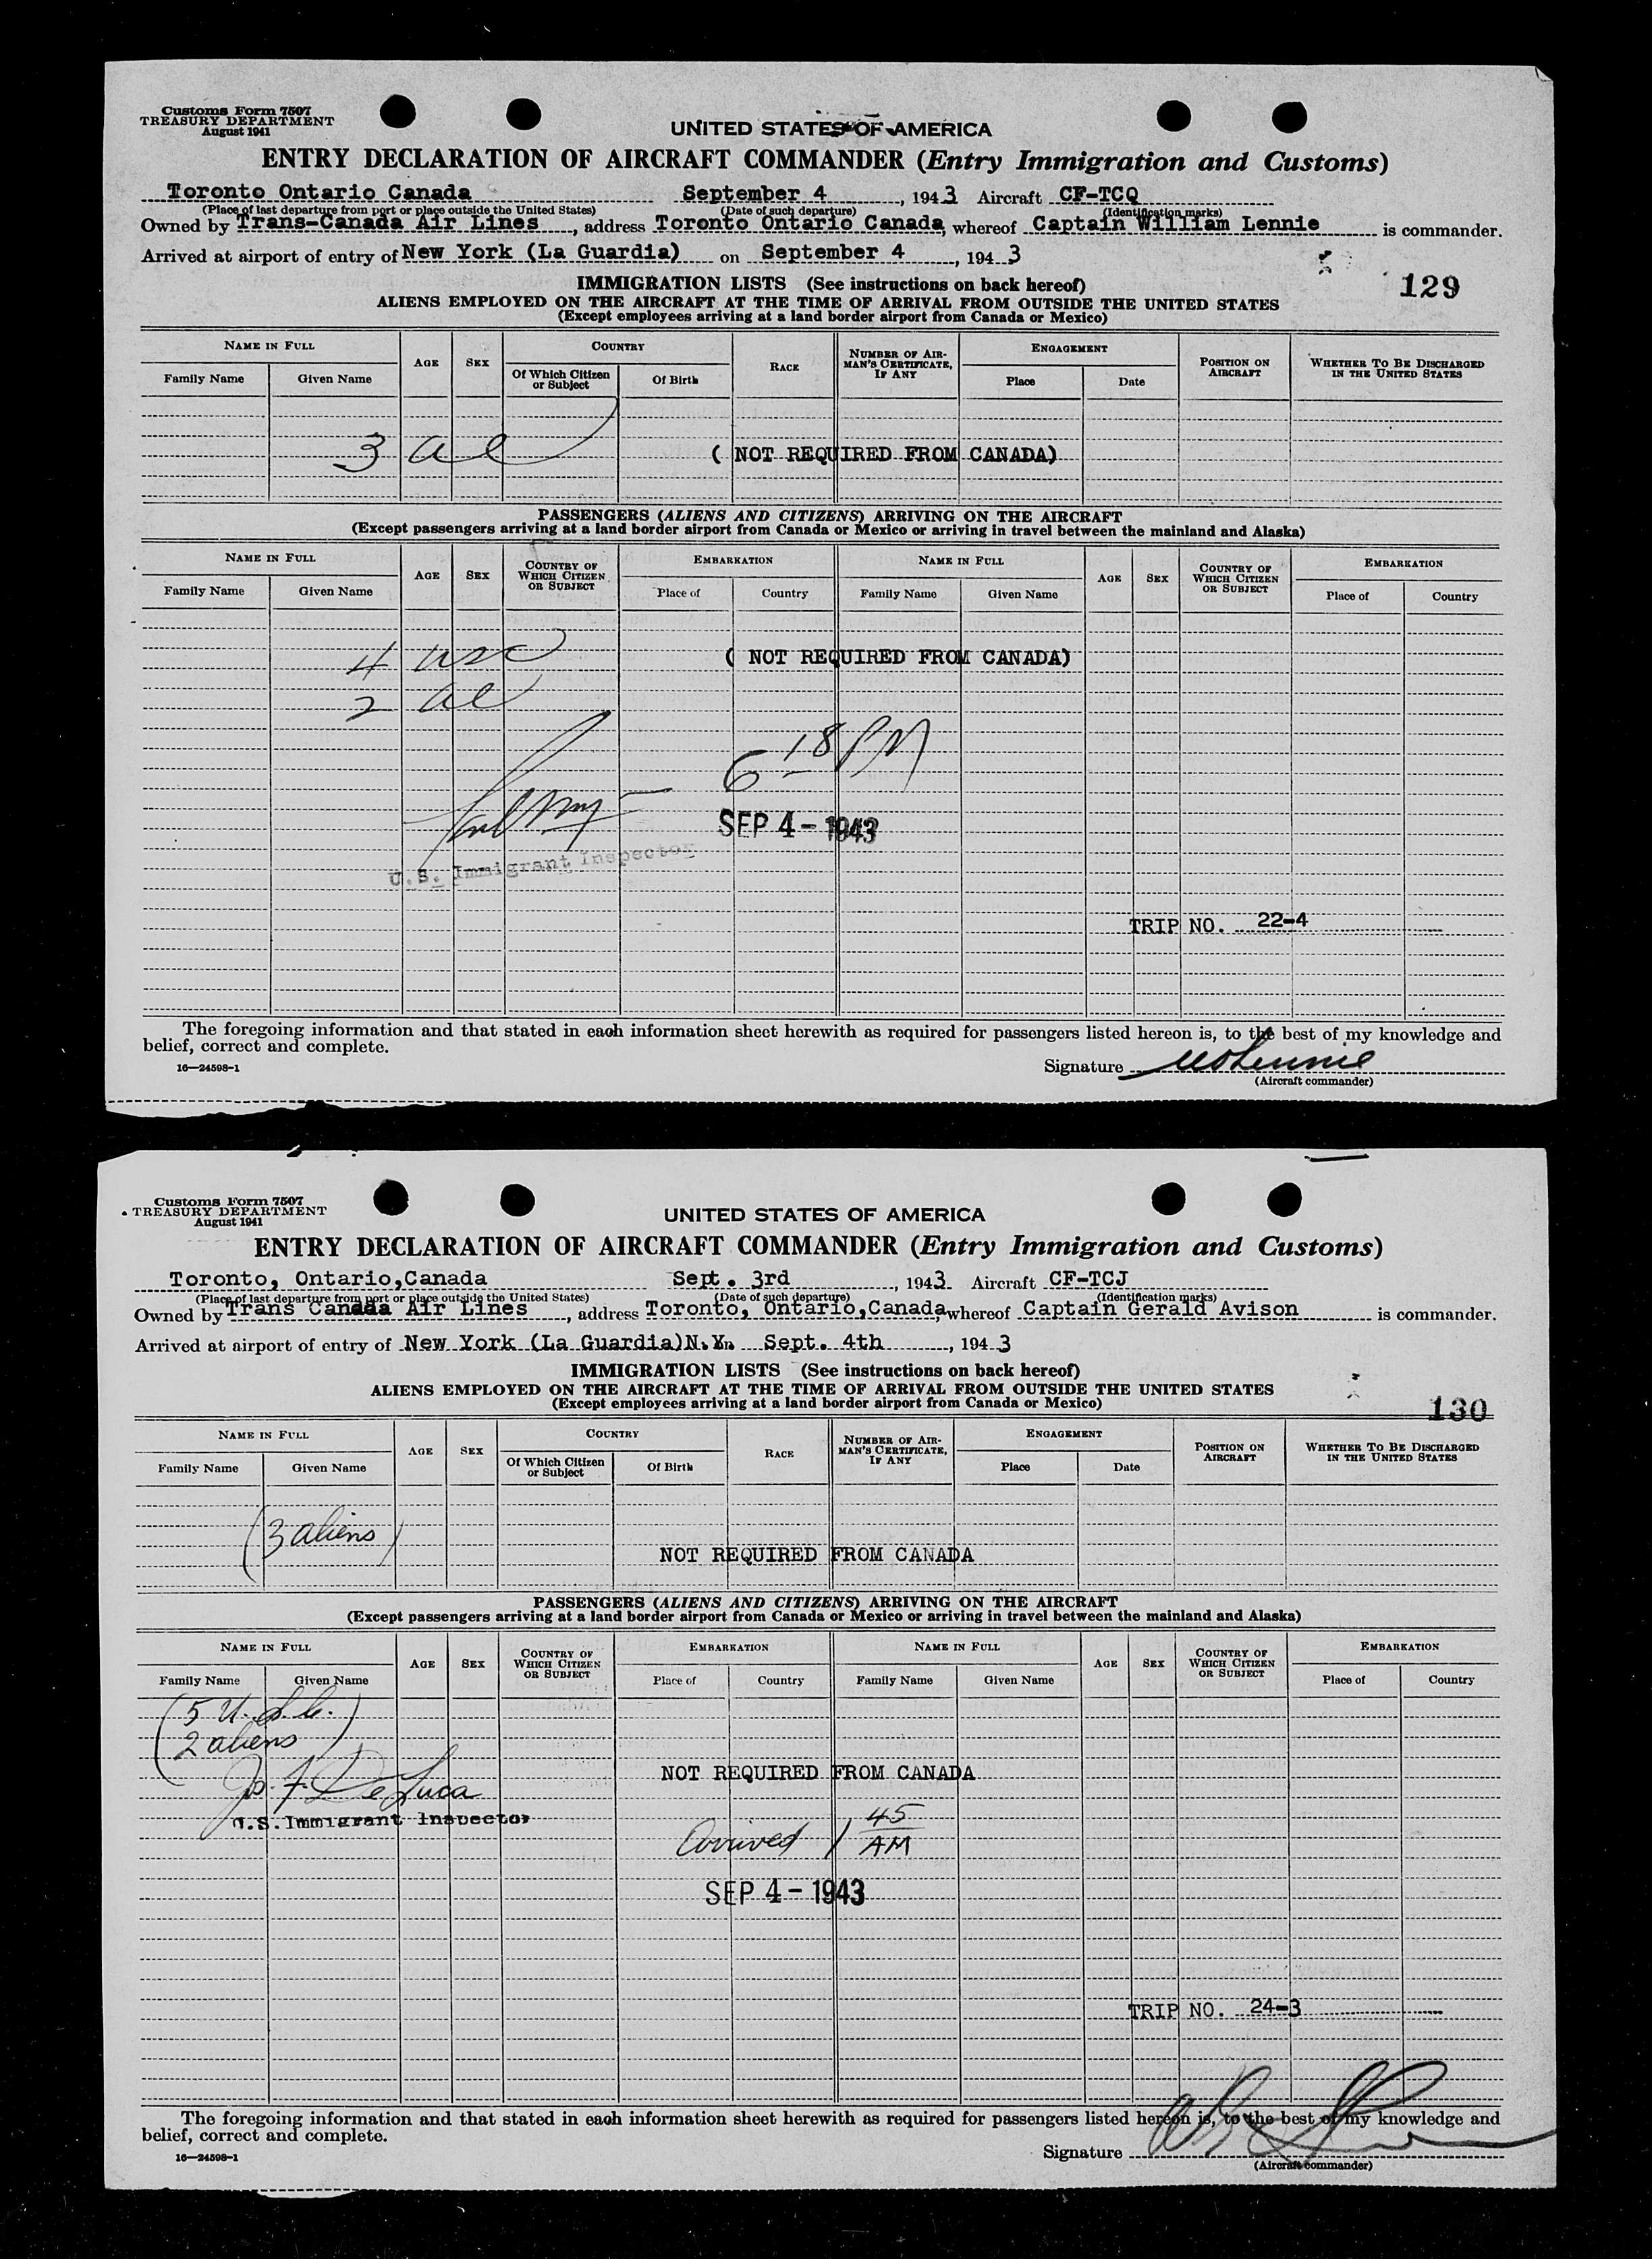 Customs Form 7507
TREASURY DEPARTMENT
August 1941
UNITED STATES OF AMERICA
ENTRY DECLARATION OF AIRCRAFT COMMANDER (Entry Immigration and Customs)
Toronto Ontario Canada September 4, 1943 Aircraft CF-TCQ
(Place of last departure from port or place outside the United States) (Date of such departure) (Identification marks)
Owned by Trans-Canada Air Lines, address Toronto Ontario Canada, whereof Captain William Lennie is commander.
Arrived at airport of entry of New York (La Guardia) on September 4, 1943
129
IMMIGRATION LISTS (See instructions on back hereof)
ALIENS EMPLOYED ON THE AIRCRAFT AT THE TIME OF ARRIVAL FROM OUTSIDE THE UNITED STATES
(Except employees arriving at a land border airport from Canada or Mexico)
NAME IN FULL AGE SEX COUNTRY RACE NUMBER OF AIRMAN'S CERTIFICATE, IF ANY ENGAGEMENT POSITION ON AIRCRAFT WHETHER TO BE DISCHARGED IN THE UNITED STATES
Family Name Given Name Of Which Citizen or Subject Of Birth Place Date
3 al ( NOT REQUIRED FROM CANADA)
PASSENGERS (ALIENS AND CITIZENS) ARRIVING ON THE AIRCRAFT
(Except passengers arriving at a land border airport from Canada or Mexico or arriving in travel between the mainland and Alaska)
NAME IN FULL AGE SEX COUNTRY OF WHICH CITIZEN OR SUBJECT EMBARKATION NAME IN FULL AGE SEX COUNTRY OF WHICH CITIZEN OR SUBJECT EMBARKATION
Family Name Given Name Place of Country Family Name Given Name Place of Country
4 usc ( NOT REQUIRED FROM CANADA)
2 al
6 18 PM
SEP 4 - 1943
U.S. Immigrant Inspector
TRIP NO. 22-4
The foregoing information and that stated in each information sheet herewith as required for passengers listed hereon is, to the best of my knowledge and
belief, correct and complete.
16—24598-1
Signature WDLennie
(Aircraft commander)
Customs Form 7507
TREASURY DEPARTMENT
August 1941
UNITED STATES OF AMERICA
ENTRY DECLARATION OF AIRCRAFT COMMANDER (Entry Immigration and Customs)
Toronto, Ontario,Canada Sept. 3rd, 1943 Aircraft CF-TCJ
(Place of last departure from port or place outside the United States) (Date of such departure) (Identification marks)
Owned by Trans Canada Air Lines, address Toronto, Ontario,Canada, whereof Captain Gerald Avison is commander.
Arrived at airport of entry of New York (La Guardia)N.Y. on Sept. 4th, 1943
IMMIGRATION LISTS (See instructions on back hereof)
ALIENS EMPLOYED ON THE AIRCRAFT AT THE TIME OF ARRIVAL FROM OUTSIDE THE UNITED STATES
(Except employees arriving at a land border airport from Canada or Mexico)
130
NAME IN FULL AGE SEX COUNTRY RACE NUMBER OF AIRMAN'S CERTIFICATE, IF ANY ENGAGEMENT POSITION ON AIRCRAFT WHETHER TO BE DISCHARGED IN THE UNITED STATES
Family Name Given Name Of Which Citizen or Subject Of Birth Place Date
(3 aliens)
NOT REQUIRED FROM CANADA
PASSENGERS (ALIENS AND CITIZENS) ARRIVING ON THE AIRCRAFT
(Except passengers arriving at a land border airport from Canada or Mexico or arriving in travel between the mainland and Alaska)
NAME IN FULL AGE SEX COUNTRY OF WHICH CITIZEN OR SUBJECT EMBARKATION NAME IN FULL AGE SEX COUNTRY OF WHICH CITIZEN OR SUBJECT EMBARKATION
Family Name Given Name Place of Country Family Name Given Name Place of Country
(5 U.S.C.
2 aliens)
NOT REQUIRED FROM CANADA
Jo. F. DeLuca
U.S. Immigrant Inspector
Arrived 1 45 AM
SEP 4 - 1943
TRIP NO. 24-3
The foregoing information and that stated in each information sheet herewith as required for passengers listed hereon is, to the best of my knowledge and
belief, correct and complete.
16—24598-1
Signature
(Aircraft commander)